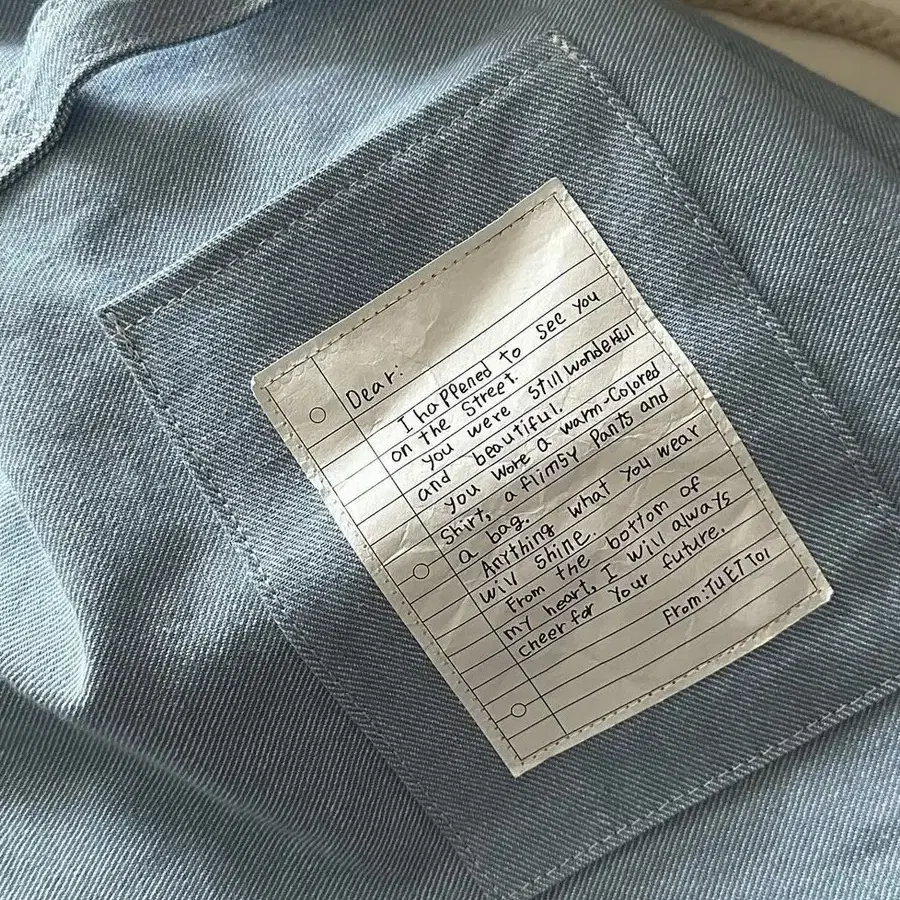 Dear:
I happened to see you
on the street.
you were still wonderful
and beautiful.
you wore a warm-colored
shirt, a flimsy pants and
a bag.
Anything what you wear
will shine.
From the bottom of
my heart, I will always
cheer for your future.
From:TUETTOI